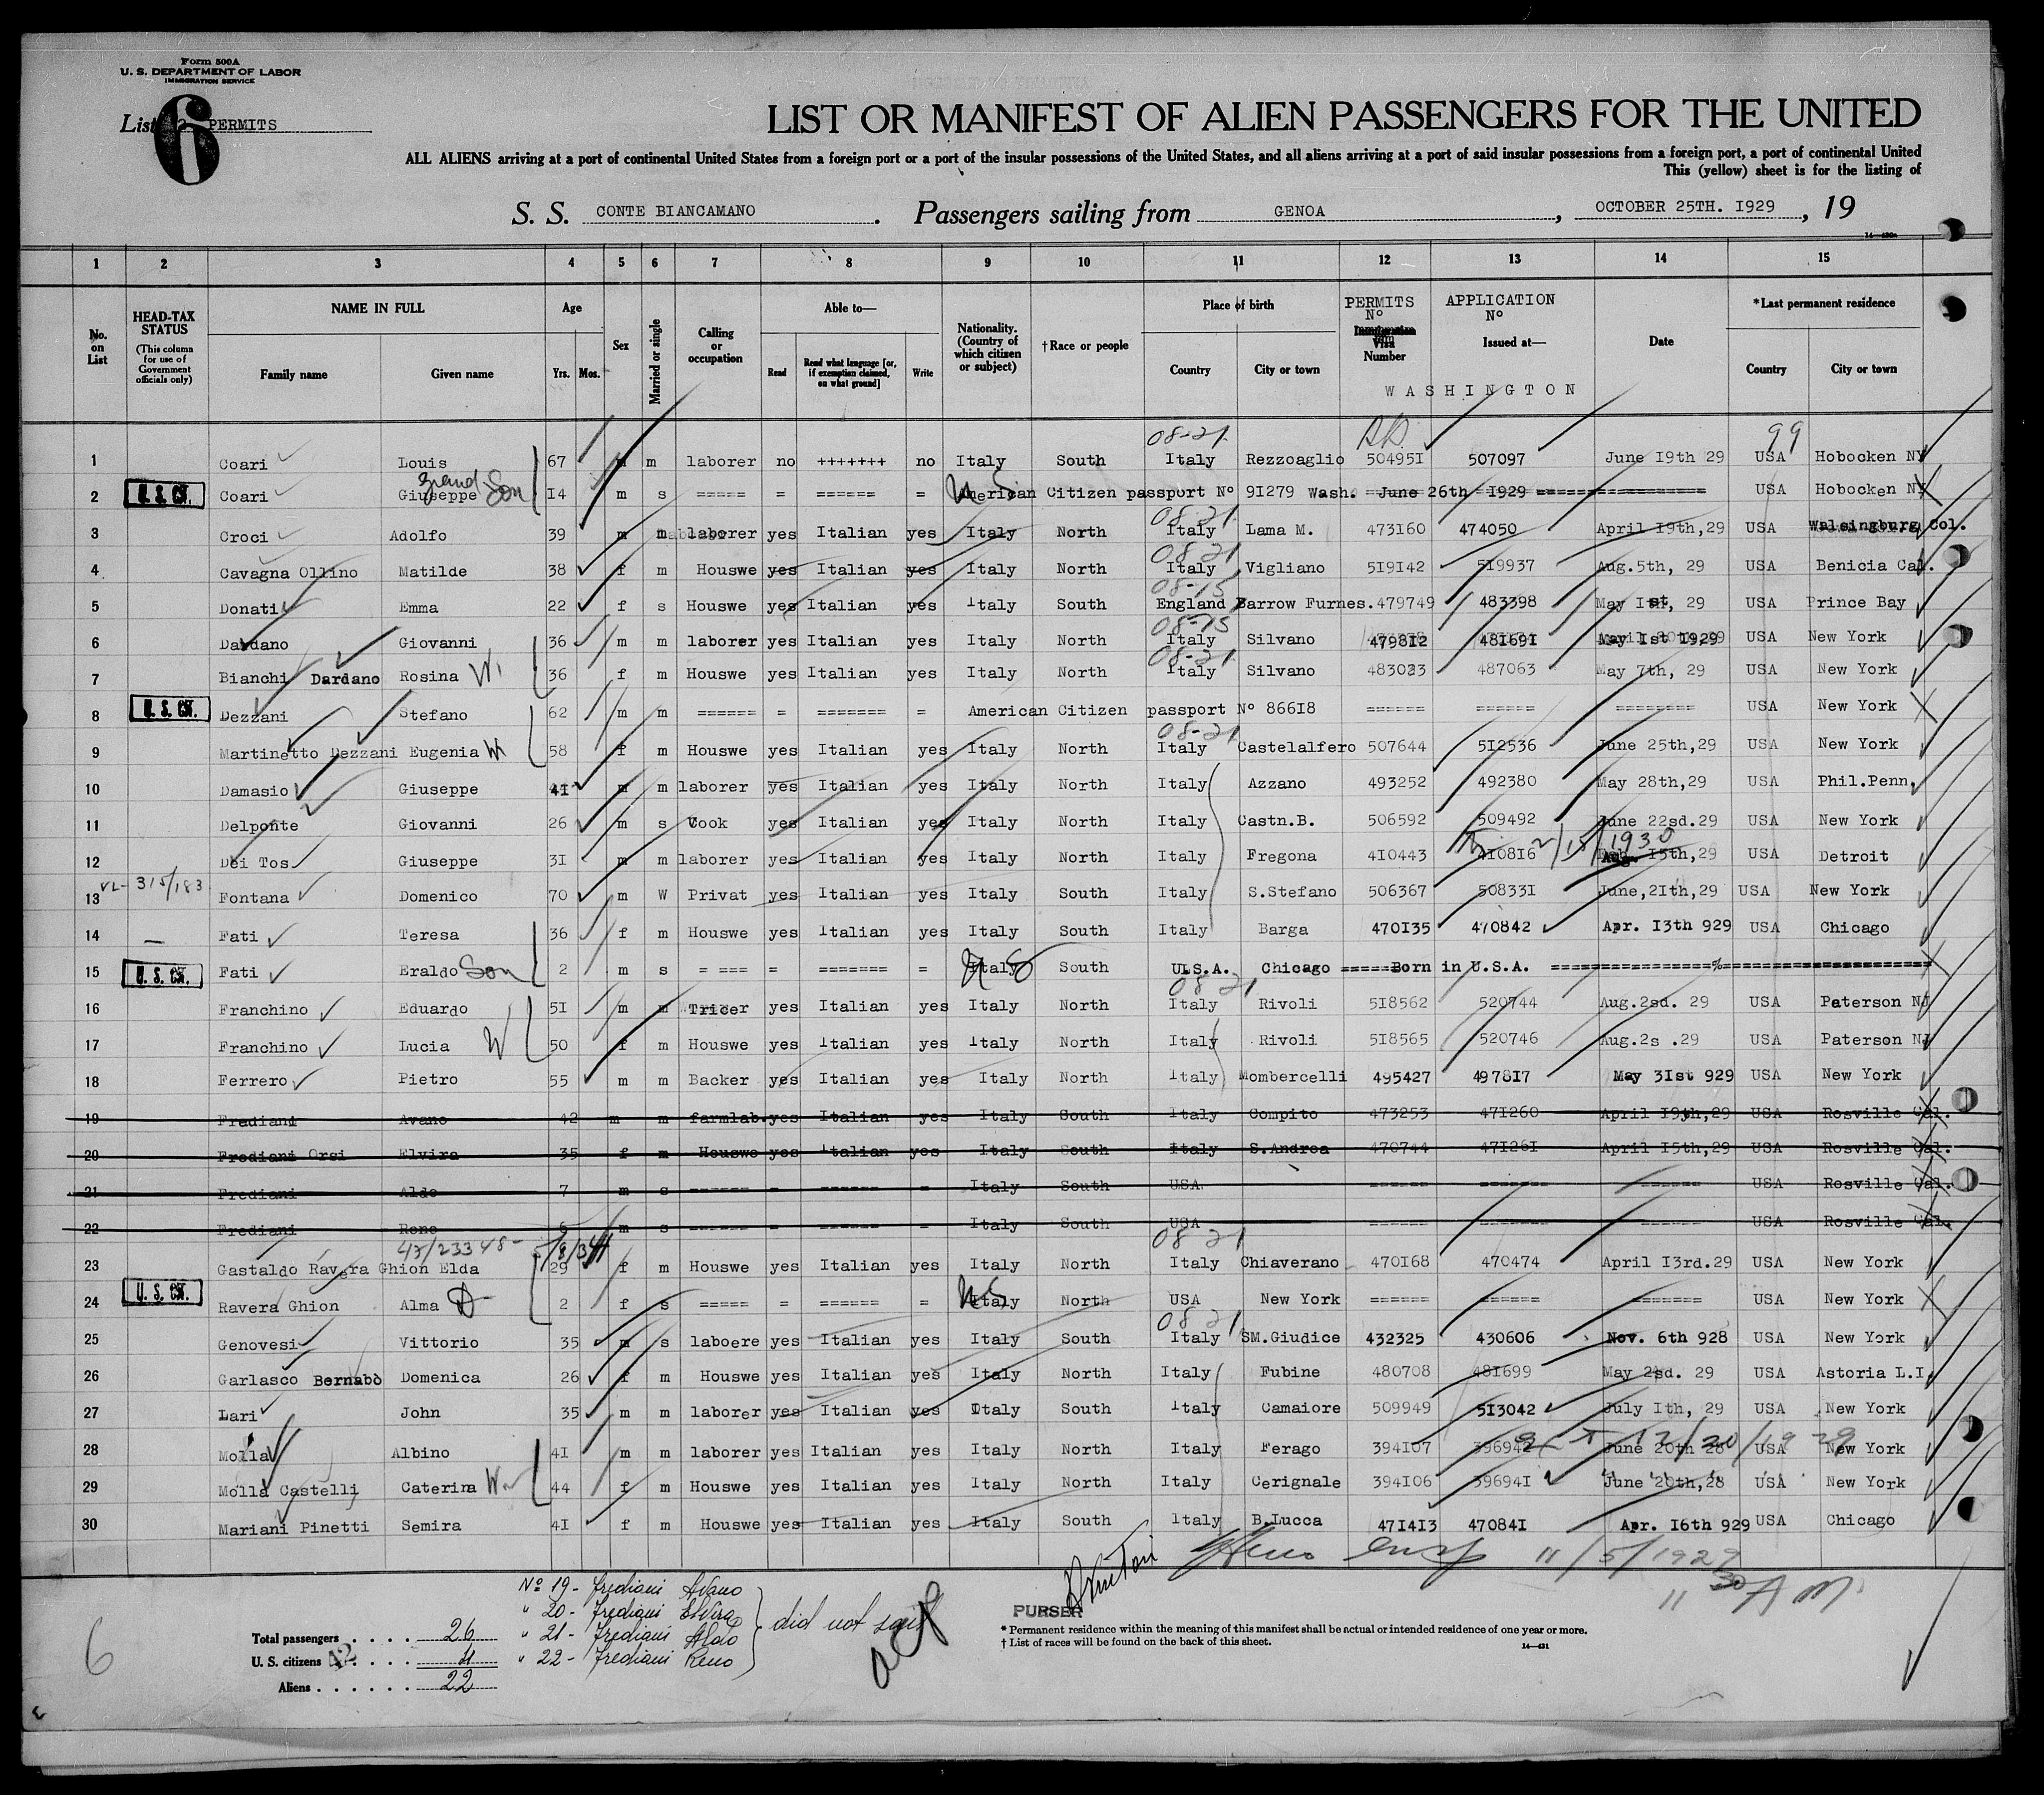 Form 500A
U. S. DEPARTMENT OF LABOR
IMMIGRATION SERVICE
List 6 PERMITS
LIST OR MANIFEST OF ALIEN PASSENGERS FOR THE UNITED
ALL ALIENS arriving at a port of continental United States from a foreign port or a port of the insular possessions of the United States, and all aliens arriving at a port of said insular possessions from a foreign port, a port of continental United
This (yellow) sheet is for the listing of
S. S. CONTE BIANCAMANO. Passengers sailing from GENOA, OCTOBER 25TH. I929, 19
1 2 3 4 5 6 7 8 9 10 11 12 13 14 15
No. on List
HEAD-TAX STATUS (This column for use of Government officials only)
NAME IN FULL
Family name Given name
Age Yrs. Mos.
Sex
Married or single
Calling or occupation
Able to—
Read Read what language [or, if exemption claimed, on what ground] Write
Nationality. (Country of which citizen or subject)
† Race or people
Place of birth
Country City or town
PERMITS No Visa Number
APPLICATION No Issued at—
Date
WASHINGTON
*Last permanent residence
Country City or town
08-21 99
1 Coari Louis 67 m m laborer no +++++++ no Italy South Italy Rezzoaglio 50495I 507097 June I9th 29 USA Hobocken NY
grand Son
2 U. S. CIT. Coari Giuseppe I4 m s ===== = ====== = American Citizen passport No 9I279 Wash. June 26th I929 USA Hobocken NY
08-21
3 Croci Adolfo 39 m m laborer yes Italian yes Italy North Italy Lama M. 473I60 474050 April I9th,29 USA Walsingburg Col.
08-21
4 Cavagna Ollino Matilde 38 f m Houswe yes Italian yes Italy North Italy Vigliano 5I9I42 5I9937 Aug.5th, 29 USA Benicia Cal.
08-15
5 Donati Emma 22 f s Houswe yes Italian yes Italy South England Barrow Furnes. 479749 483398 May Ist, 29 USA Prince Bay
08-15
6 Dardano Giovanni 36 m m laborer yes Italian yes Italy North Italy Silvano 4798I2 48I69I May Ist I929 USA New York
08-21
7 Bianchi Dardano Rosina W. 36 f m Houswe yes Italian yes Italy North Italy Silvano 483023 487063 May 7th, 29 USA New York
8 U. S. CIT. Dezzani Stefano 62 m m ====== = ======= = American Citizen passport No 866I8 ====== ====== ======== USA New York
08-21
9 Martinetto Dezzani Eugenia W 58 f m Houswe yes Italian yes Italy North Italy Castelalfero 507644 5I2536 June 25th,29 USA New York
10 Damasio Giuseppe 4I m m laborer yes Italian yes Italy North Italy Azzano 493252 492380 May 28th,29 USA Phil.Penn.
11 Delponte Giovanni 26 m s Cook yes Italian yes Italy North Italy Castn.B. 506592 509492 June 22sd.29 USA New York
2/15/1930
12 Dei Tos Giuseppe 3I m m laborer yes Italian yes Italy North Italy Fregona 4I0443 4I08I6 I5th,29 USA Detroit
VL-315/183
13 Fontana Domenico 70 m W Privat yes Italian yes Italy South Italy S.Stefano 506367 50833I June,2Ith,29 USA New York
14 Fati Teresa 36 f m Houswe yes Italian yes Italy South Italy Barga 470I35 470842 Apr. I3th 929 USA Chicago
15 U. S. CIT. Fati Eraldo Son 2 m s = === = ======= = Italy US South U.S.A. Chicago =====Born in U.S.A. =================%======================
08 21
16 Franchino Eduardo 5I m m Tricer yes Italian yes Italy North Italy Rivoli 5I8562 520744 Aug.2sd. 29 USA Paterson NJ
17 Franchino Lucia W 50 f m Houswe yes Italian yes Italy North Italy Rivoli 5I8565 520746 Aug.2s .29 USA Paterson NJ
18 Ferrero Pietro 55 m m Backer yes Italian yes Italy North Italy Mombercelli 495427 4978I7 May 3Ist 929 USA New York
19 Frediani Avano 42 m m farmlab. yes Italian yes Italy South Italy Compito 473253 47I260 April I9th,29 USA Rosville Cal.
20 Frediani Orsi Elvira 35 f m Houswe yes Italian yes Italy South Italy S.Andrea 470744 47I26I April I5th,29 USA Rosville Cal.
21 Frediani Aldo 7 m s ------ - ------ - Italy South USA ------ ------- ------- USA Rosville Cal.
22 Frediani Reno 6 m s ------ - ------ - Italy South USA ------ ------- ------- USA Rosville Cal.
47/23348- 5/8/34 08 21
23 Gastaldo Ravera Ghion Elda 29 f m Houswe yes Italian yes Italy North Italy Chiaverano 470I68 470474 April I3rd.29 USA New York
24 U. S. CIT. Ravera Ghion Alma D 2 f s ===== = ====== = Italy US North USA New York ====== ====== ======= USA New York
08 21
25 Genovesi Vittorio 35 m s laboere yes Italian yes Italy South Italy SM.Giudice 432325 430606 Nov. 6th 928 USA New York
26 Garlasco Bernabò Domenica 26 f m Houswe yes Italian yes Italy North Italy Fubine 480708 48I699 May 2sd. 29 USA Astoria L.I.
27 Lari John 35 m m laborer yes Italian yes Italy South Italy Camaiore 509949 5I3042 July Ith, 29 USA New York
12/20/1929
28 Molla Albino 4I m m laborer yes Italian yes Italy North Italy Ferago 394I07 396942 June 20th 28 USA New York
29 Molla Castelli Caterina W. 44 f m Houswe yes Italian yes Italy North Italy Cerignale 394I06 39694I June 20th,28 USA New York
30 Mariani Pinetti Semira 4I f m Houswe yes Italian yes Italy South Italy B.Lucca 47I4I3 47084I Apr. I6th 929 USA Chicago
11/5/1929
11 30 A M.
No 19 - Frediani Avano
" 20 - Frediani Elvira
" 21 - Frediani Aldo
" 22 - Frediani Reno
did not sail
PURSER
Total passengers . . . . 26
U. S. citizens . . . . . 4
Aliens . . . . . . 22
42
6
* Permanent residence within the meaning of this manifest shall be actual or intended residence of one year or more.
† List of races will be found on the back of this sheet.